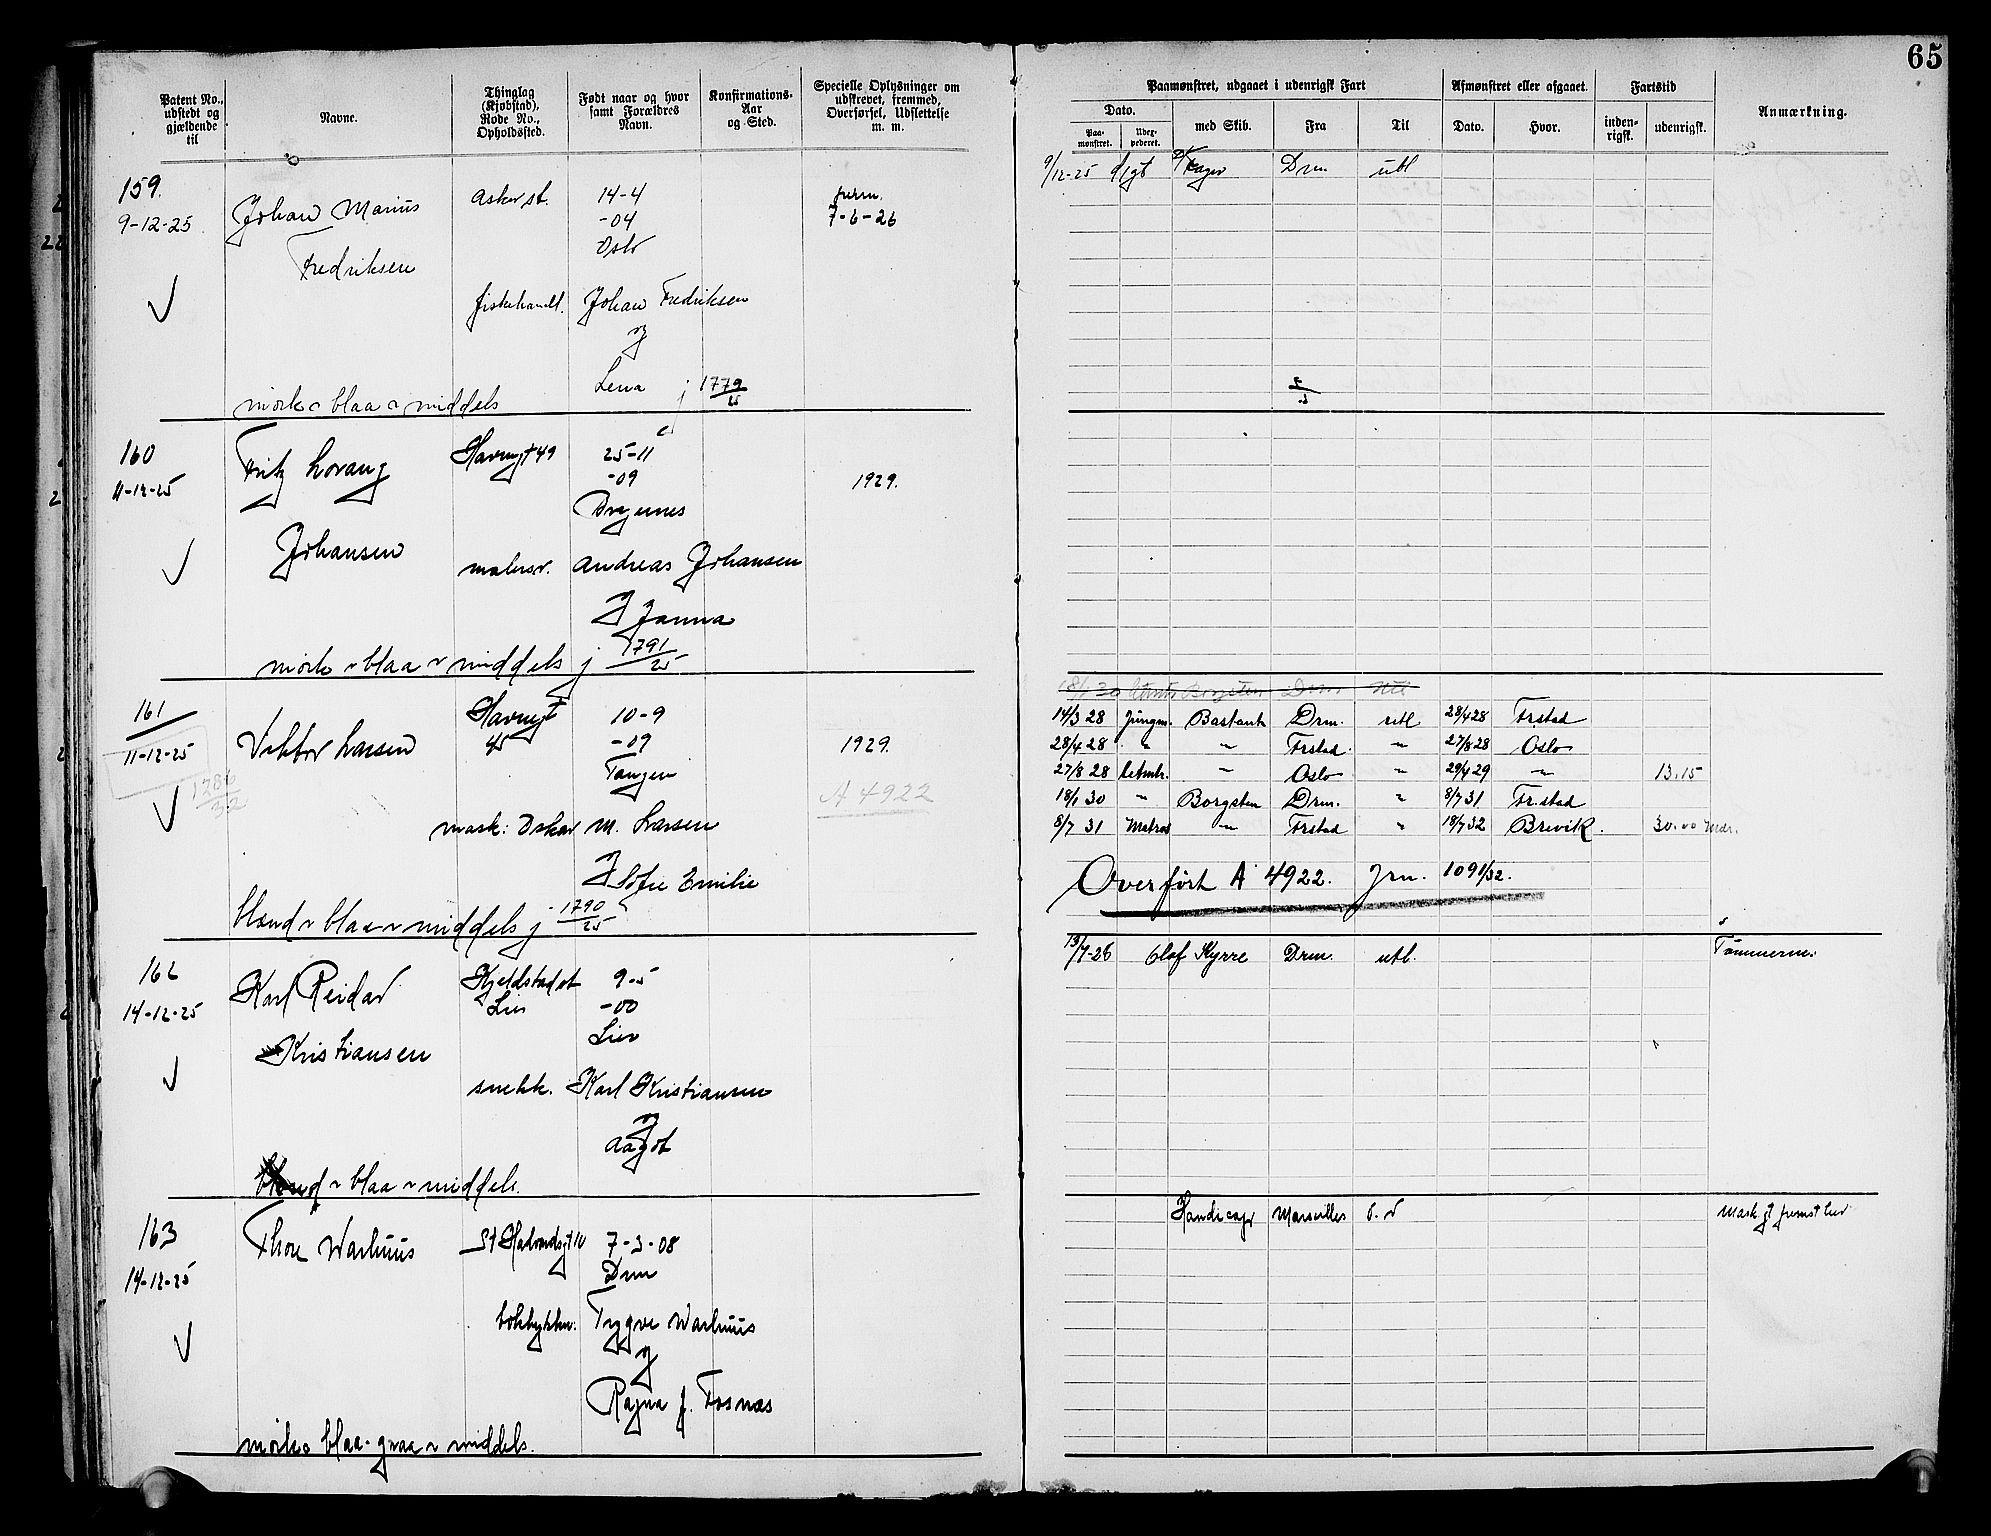 65
Patent No., udstedt og gjældende til
Navne.
Thinglag (Kjøbstad), Rode No., Opholdssted.
Født naar og hvor samt Forældres Navn.
Konfirmations-Aar og Sted.
Specielle Oplysninger om udskrevet, fremmed, Overførsel, Udslettelse m. m.
Paamønstret, udgaaet i udenrigsk Fart
Afmønstret eller afgaaet.
Fartstid
Anmærkning.
Dato.
med Skib.
Fra
Til
Dato.
Hvor.
inden-rigsk.
udenrigsk.
Paa-mønstret.
159.
9-12-25
Johan Marius
Fredriksen
Asker st.
14-4
-04
Oslo
7-6-26
fiskehandl. Johan Fredriksen
og
Lena j 1779/25
mørk blaa middels
9/12-25 Drm. utl
160
11-12-25
Fritz Lorang
Johansen
Havnegt 49
25-11
-09
Bragernes
1929.
malersv. Andreas Johansen
og Janna
mørk blaa middels j 1791/25
161
11-12-25
1786/32
Viktor Larsen
Havnegt
45
10-9
-09
Tangen
1929.
A 4922
mask: Oskar M. Larsen
og Sofie Emilie
blond blaa middels j 1790/25
18/1 30 Borgsten Drm utl
14/3 28 Jungm. Bastant Drm. utl 28/4 28 Fr.stad
28/4 28 " " Frstad. " 27/8 28 Oslo
27/8 28 Letmtr. " Oslo " 29/4 29 " 13.15
18/1 30 " Borgsten Drm. " 8/7 31 Fr.stad
8/7 31 Matros " Frstad " 18/7 32 Brevik. 30.00 Mdr.
Overført A 4922. Jrn. 1091/32.
162
14-12-25
Karl Reidar
Kristiansen
Kjeldstad st
Lier
9-5
-00
Lier
snekk. Karl Kristiansen
og
Aagot
blond blaa middels.
13/7-26 Olaf Kyrre Drm. utl. Tømmerm.
163
14-12-25
Thore Warhuus
St Halvardsgt 10
7-3-08
Drm
boktrykker. Trygve Warhuus
og
Ragna f. Fosnæs
mørk blaa-graa middels.
Handicap Marseilles